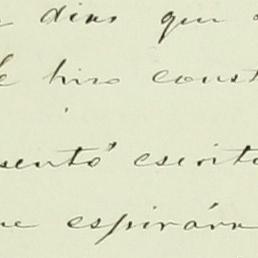 dias que
le hizo const
sentó escrito
ue espirára